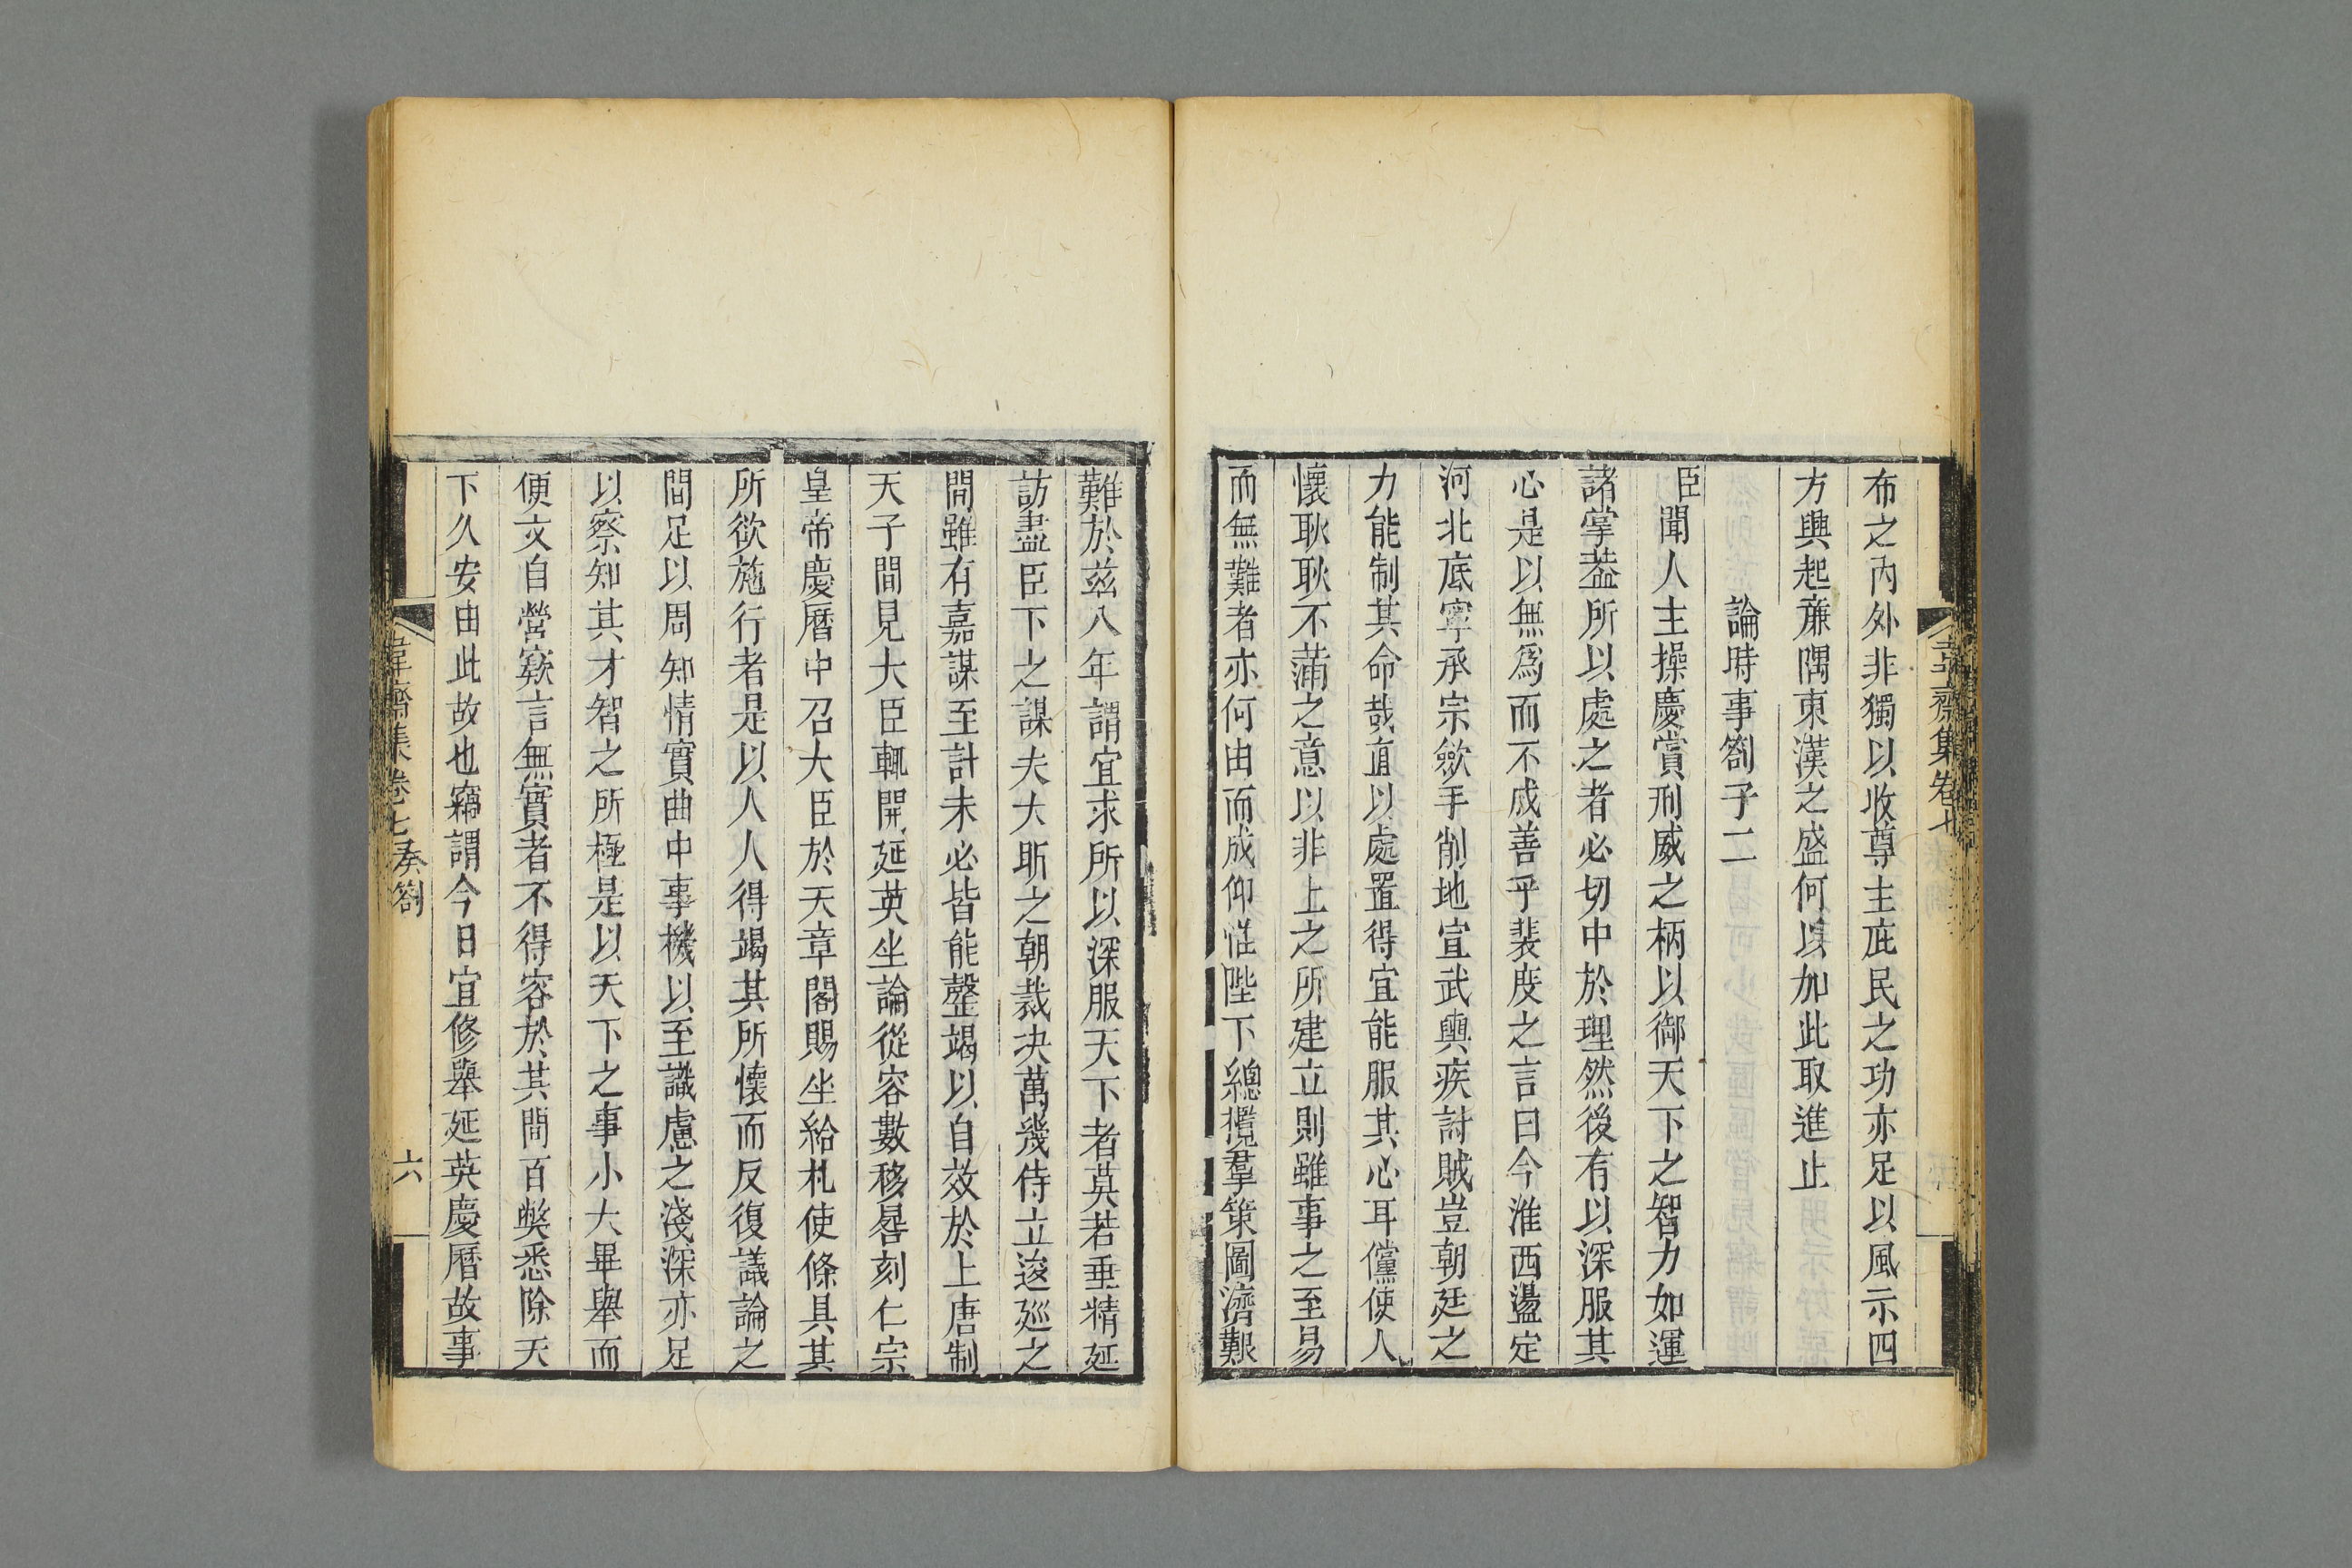 布之內外非獨以收尊主庇民之功亦足以風示四
方興起亷隅東漢之盛何以加此取進止
論時事劄子二
臣聞人主操慶賞刑威之柄以御天下之智力如運
諸掌葢所以處之者必切中於理然後有以深服其
心是以無爲而不成善乎裴度之言曰今淮西盪定
河北底寧承宗歛手削地宣武輿疾討賊豈朝廷之
力能制其命哉直以處置得宜能服其心耳儻使人
懷耿耿不滿之意以非上之所建立則雖事之至易
而無難者亦何由而成仰惟陛下總攬羣策圖濟艱
難於兹八年謂宜求所以深服天下者莫若垂精延
訪盡臣下之謀夫大昕之朝裁决萬幾侍立逡廵之
間雖有嘉謀至計未必皆能罄竭以自效於上唐制
天子間見大臣輒開延英坐論從容數移晷刻仁宗
皇帝慶曆中召大臣於天章閣賜坐給札使條具其
所欲施行者是以人人得竭其所懷而反復議論之
間足以周知情實曲中事機以至識慮之淺深亦足
以察知其才智之所極是以天下之事小大畢舉而
便文自營窾言無實者不得容於其間百獘悉除天
下久安由此故也竊謂今日宜修舉延英慶曆故事
韋齋集卷七奏劄
六